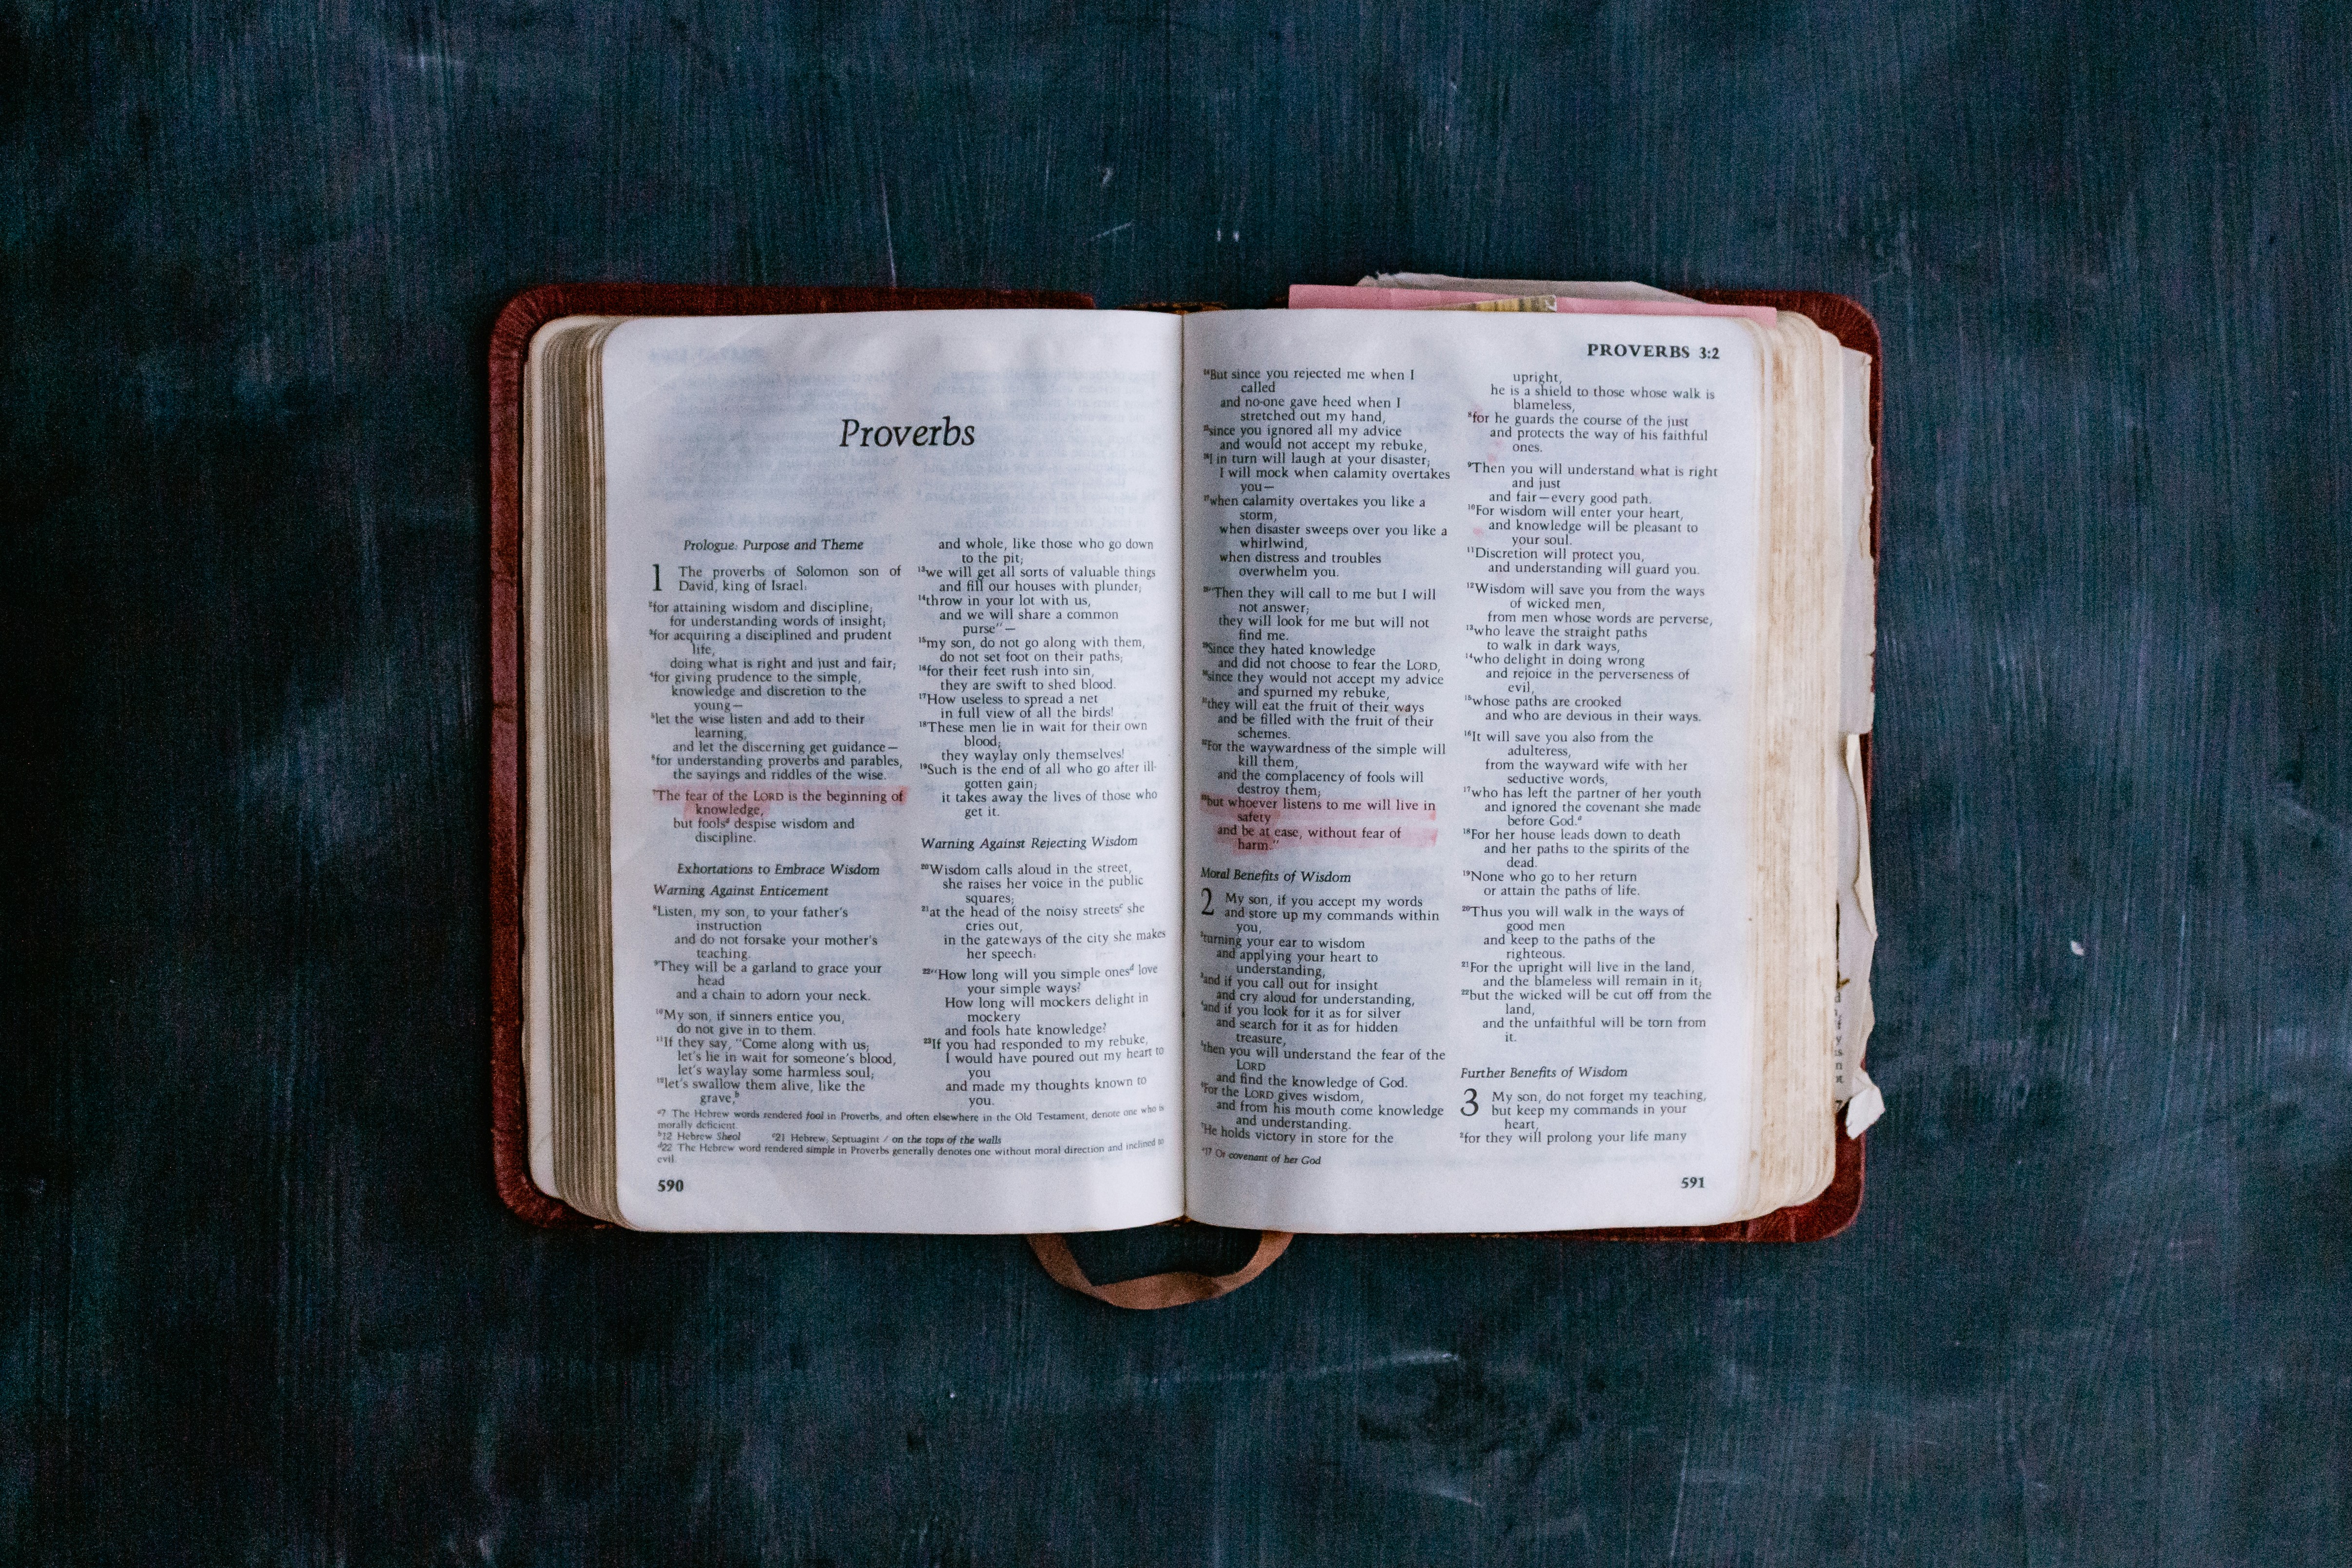 Proverbs
Prologue: Purpose and Theme
1 The proverbs of Solomon son of
David, king of Israel:
2for attaining wisdom and discipline;
for understanding words of insight;
3for acquiring a disciplined and prudent
life,
doing what is right and just and fair;
4for giving prudence to the simple,
knowledge and discretion to the
young—
5let the wise listen and add to their
learning,
and let the discerning get guidance—
6for understanding proverbs and parables,
the sayings and riddles of the wise.
7The fear of the LORD is the beginning of
knowledge,
but foolsa despise wisdom and
discipline.
Exhortations to Embrace Wisdom
Warning Against Enticement
8Listen, my son, to your father's
instruction
and do not forsake your mother's
teaching.
9They will be a garland to grace your
head
and a chain to adorn your neck.
10My son, if sinners entice you,
do not give in to them.
11If they say, "Come along with us;
let's lie in wait for someone's blood,
let's waylay some harmless soul;
12let's swallow them alive, like the
grave,b
and whole, like those who go down
to the pit;
13we will get all sorts of valuable things
and fill our houses with plunder;
14throw in your lot with us,
and we will share a common
purse"—
15my son, do not go along with them,
do not set foot on their paths;
16for their feet rush into sin,
they are swift to shed blood.
17How useless to spread a net
in full view of all the birds!
18These men lie in wait for their own
blood;
they waylay only themselves!
19Such is the end of all who go after ill-
gotten gain;
it takes away the lives of those who
get it.
Warning Against Rejecting Wisdom
20Wisdom calls aloud in the street,
she raises her voice in the public
squares;
21at the head of the noisy streetsc she
cries out,
in the gateways of the city she makes
her speech:
22"How long will you simple onesd love
your simple ways?
How long will mockers delight in
mockery
and fools hate knowledge?
23If you had responded to my rebuke,
I would have poured out my heart to
you
and made my thoughts known to
you.
a7 The Hebrew words rendered fool in Proverbs, and often elsewhere in the Old Testament, denote one who is
morally deficient.
b12 Hebrew Sheol c21 Hebrew; Septuagint / on the tops of the walls
d22 The Hebrew word rendered simple in Proverbs generally denotes one without moral direction and inclined to
evil.
590
PROVERBS 3:2
24But since you rejected me when I
called
and no-one gave heed when I
stretched out my hand,
25since you ignored all my advice
and would not accept my rebuke,
26I in turn will laugh at your disaster;
I will mock when calamity overtakes
you—
27when calamity overtakes you like a
storm,
when disaster sweeps over you like a
whirlwind,
when distress and troubles
overwhelm you.
28"Then they will call to me but I will
not answer;
they will look for me but will not
find me.
29Since they hated knowledge
and did not choose to fear the LORD,
30since they would not accept my advice
and spurned my rebuke,
31they will eat the fruit of their ways
and be filled with the fruit of their
schemes.
32For the waywardness of the simple will
kill them,
and the complacency of fools will
destroy them;
33but whoever listens to me will live in
safety
and be at ease, without fear of
harm."
Moral Benefits of Wisdom
2 My son, if you accept my words
and store up my commands within
you,
2turning your ear to wisdom
and applying your heart to
understanding,
3and if you call out for insight
and cry aloud for understanding,
4and if you look for it as for silver
and search for it as for hidden
treasure,
5then you will understand the fear of the
LORD
and find the knowledge of God.
6For the LORD gives wisdom,
and from his mouth come knowledge
and understanding.
7He holds victory in store for the
upright,
he is a shield to those whose walk is
blameless,
8for he guards the course of the just
and protects the way of his faithful
ones.
9Then you will understand what is right
and just
and fair—every good path.
10For wisdom will enter your heart,
and knowledge will be pleasant to
your soul.
11Discretion will protect you,
and understanding will guard you.
12Wisdom will save you from the ways
of wicked men,
from men whose words are perverse,
13who leave the straight paths
to walk in dark ways,
14who delight in doing wrong
and rejoice in the perverseness of
evil,
15whose paths are crooked
and who are devious in their ways.
16It will save you also from the
adulteress,
from the wayward wife with her
seductive words,
17who has left the partner of her youth
and ignored the covenant she made
before God.a
18For her house leads down to death
and her paths to the spirits of the
dead.
19None who go to her return
or attain the paths of life.
20Thus you will walk in the ways of
good men
and keep to the paths of the
righteous.
21For the upright will live in the land,
and the blameless will remain in it;
22but the wicked will be cut off from the
land,
and the unfaithful will be torn from
it.
Further Benefits of Wisdom
3 My son, do not forget my teaching,
but keep my commands in your
heart,
2for they will prolong your life many
a17 Or covenant of her God
591